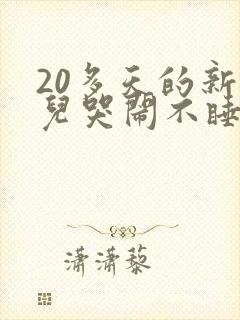 20多天的新
兒哭鬧不睡
潇潇藜